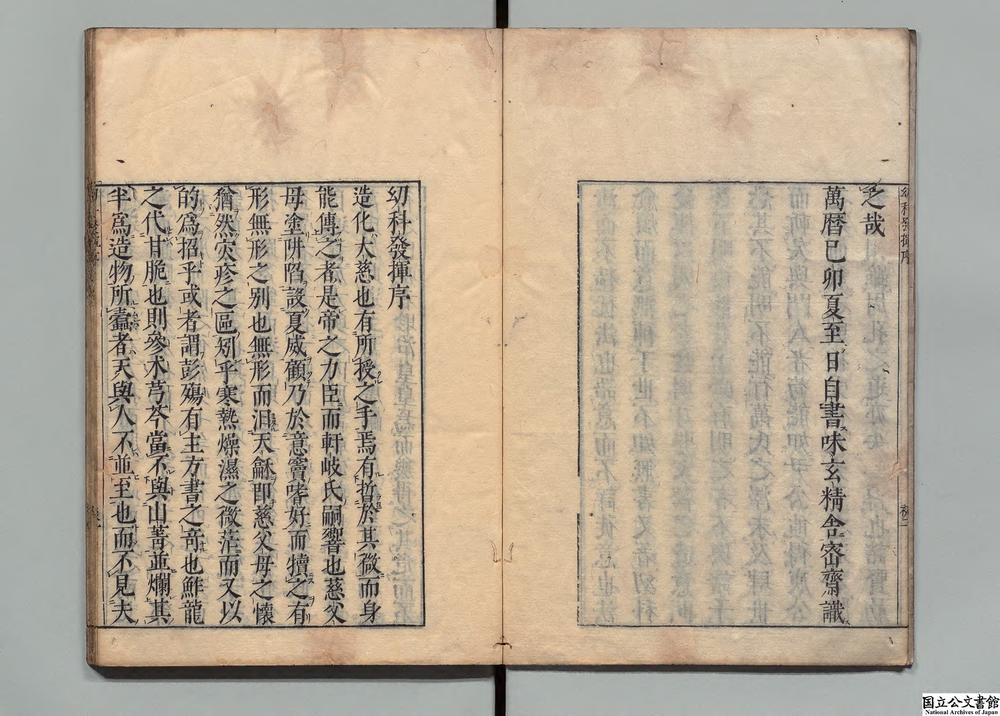 之哉
萬曆己卯夏至日自書味玄精舍密齋識
幼科發揮序
造化大慈也有所授之手焉有哲於其微而身
能傳之者是帝之力臣而軒岐氏嗣響也慈父
母塗阱陷設夏威顧乃於意竇嗜好而犢之有
形無形之别也無形而汩天龢即慈父母之懷
猶然灾疹之區矧乎寒熱燥濕之微茫而又以
的爲招乎或者謂彭殤有主方書之竒也鮓龍
之代甘脆也則參术芎芩當不與山菁並爛其
半爲造物所蠹者天與人不並至也而不見夫
国立公文書館
National Archives of Japan